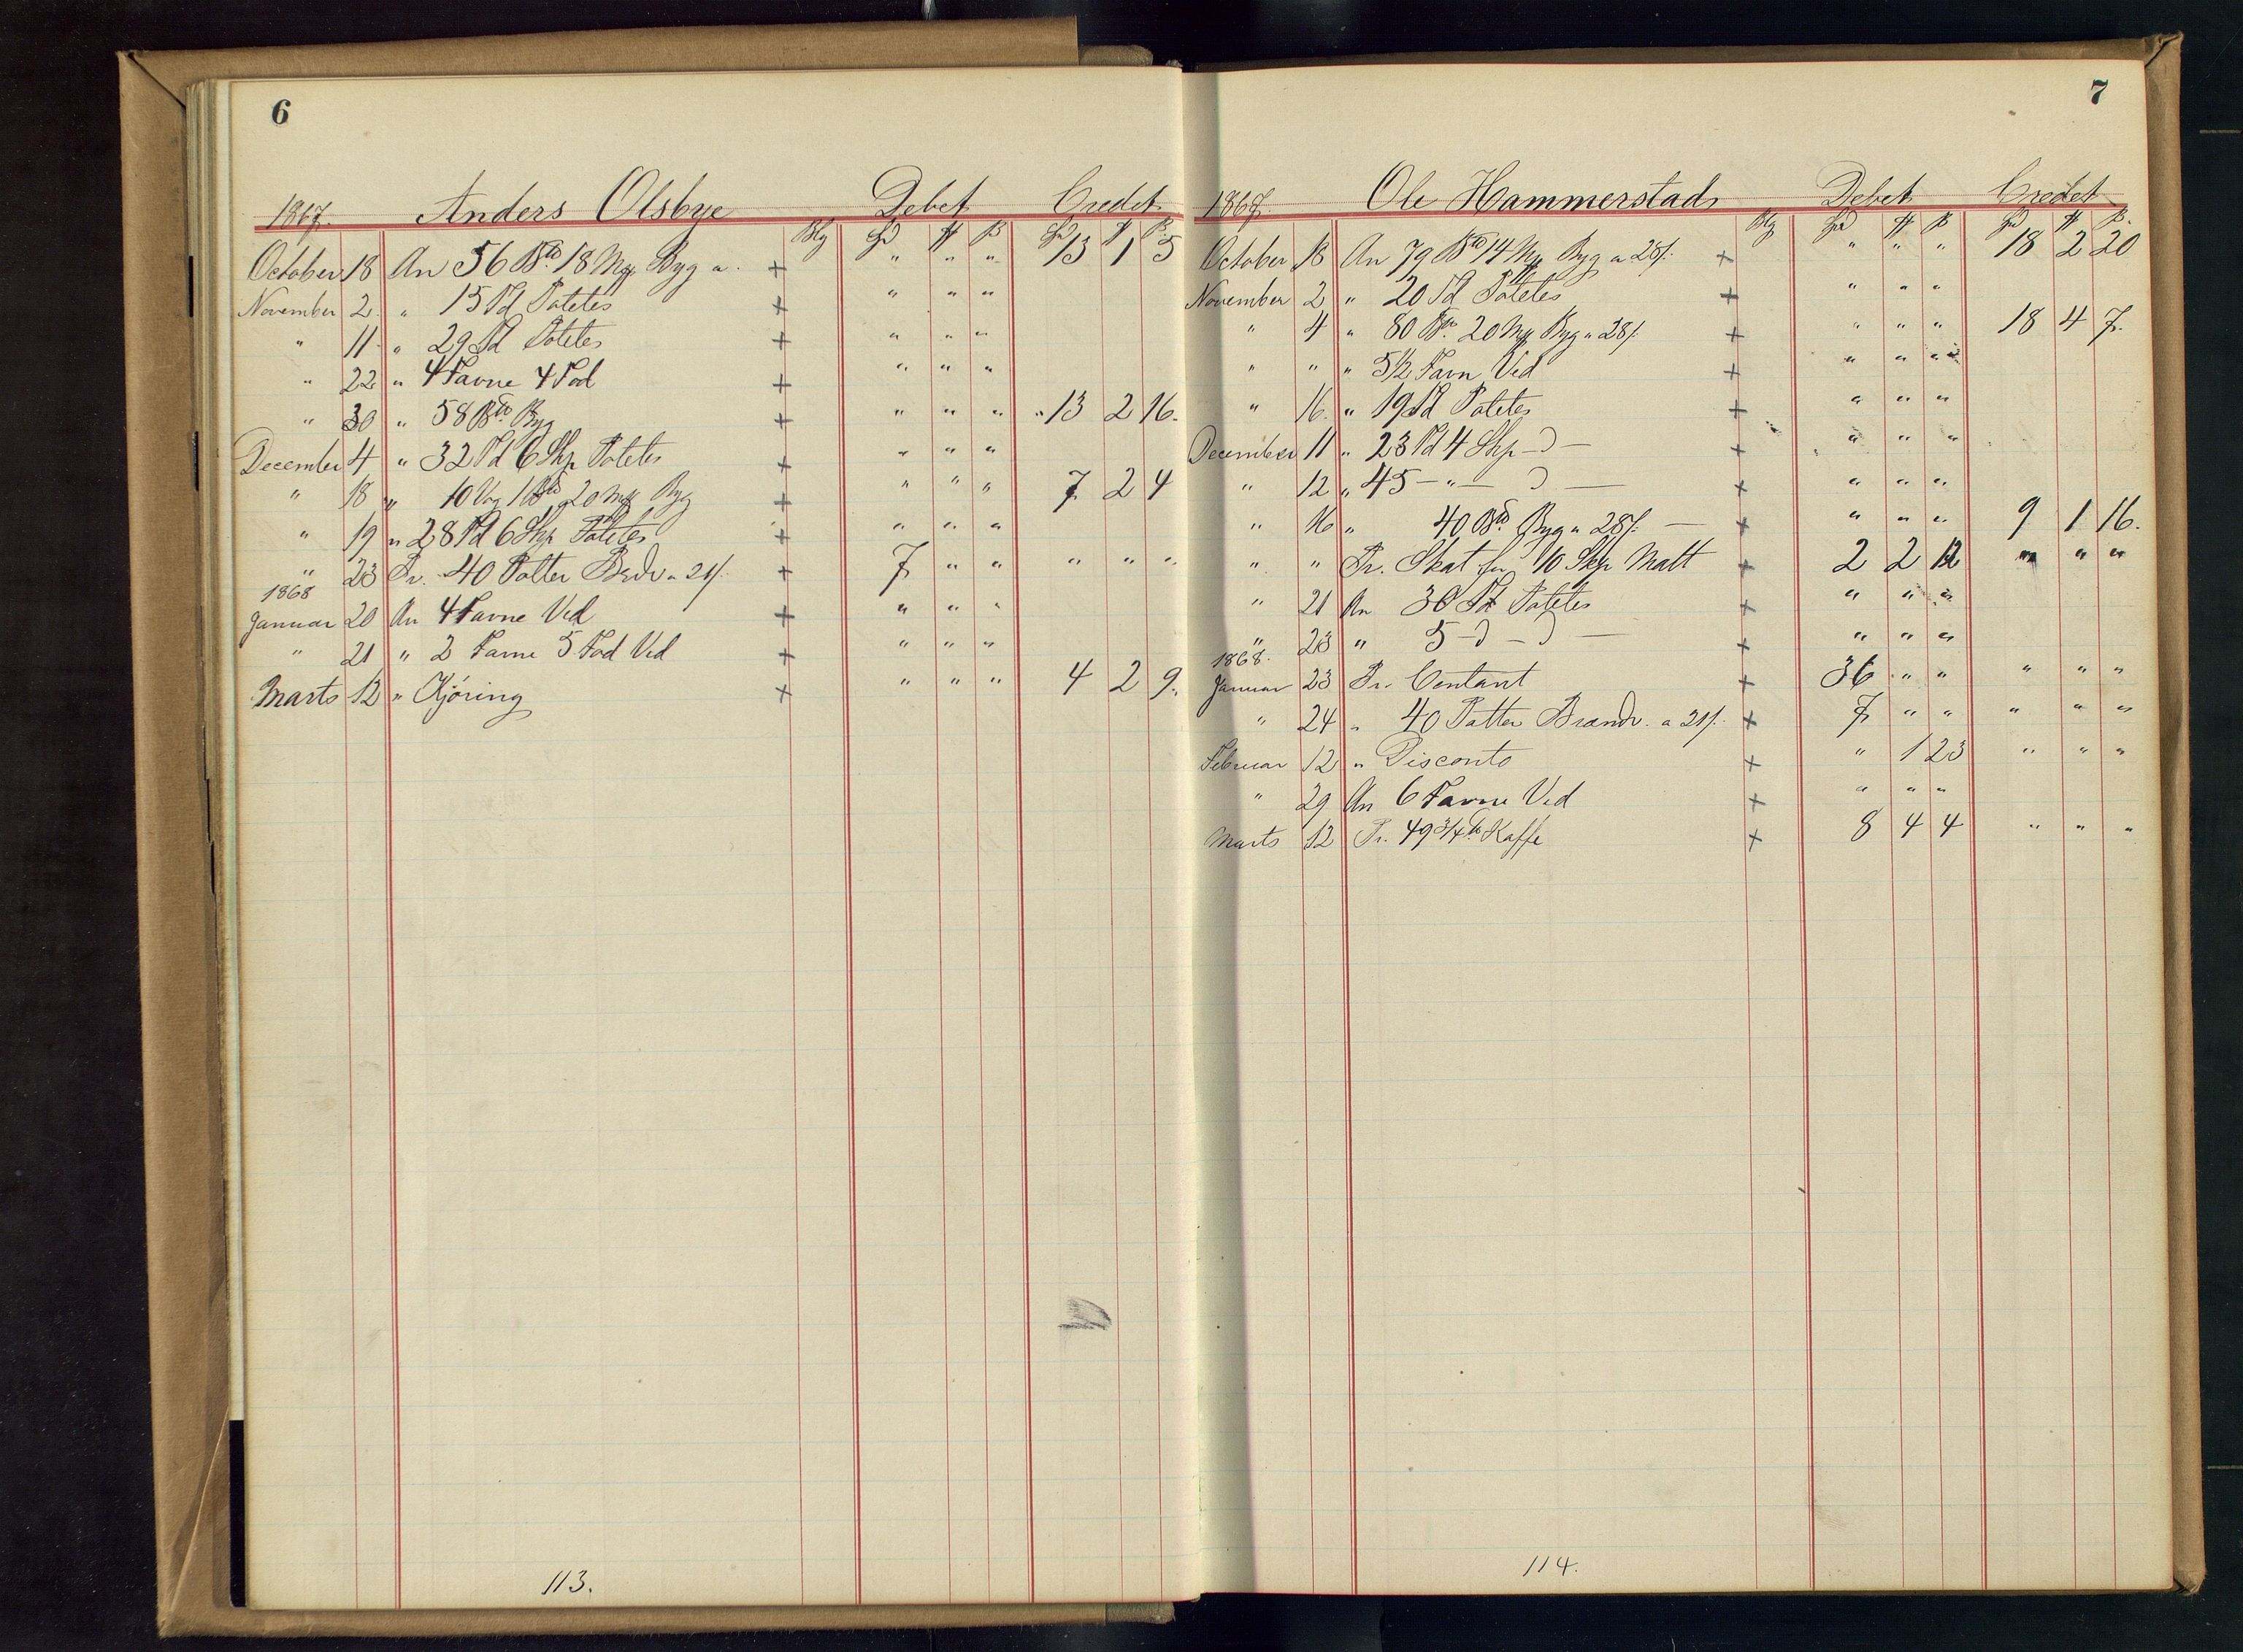 6
1867. Anders Olsbye Debet Credet
Blg Spd # ß Spd # ß
October 18 An 56 Bt 18 Mk Byg a. + " " " 13 1 5
November 2 " 15 Td Potetes + " " "
" 11 " 29 Td Potetes + " " "
" 22 " 4 Favne 4 Fod + " " "
" 30 " 58 Bt Byg + " " " 13 2 16.
December 4 " 32 Td 6 Skp Potetes + " " "
" 18 " 10 Vog 1 20 Mk Byg + " " " 7 2 4
" 19 " 28 Td 6 Skp Potetes + " " "
" 23 Pr. 40 Potter Brdv. a 21/. + 7 " " " " "
1868
Januar 20 An 4 Favne Ved + " " "
" 21 " 2 Favne 5 Fod Ved + " " "
Marts 12 " Kjöring + " " " 4 2 9.
113.
7
1867. Ole Hammerstad Debet Credet
Blg Spd # ß Spd # ß.
October 18 An 79 Bt 14 Mk Byg a 28/. + " " " 18 2 20
November 2 " 20 Td Potetes + " " "
" 4 " 80 Bt. 20 Mk Byg a 28/. + " " " 18 4 7.
" " " 5 1/2 Favn Ved + " " "
" 16. " 19 Td Potetes + " " "
December 11 " 23 Td 4 Skp - D - + " " "
" 12 " 45 - " - D - + " " "
" 16 " 40 Bt. Byg a 28/. - + " " " 9 1 16.
" " Pr. Skat for 10 Skp Malt + 2 2 12 " " "
" 21 An 30 Td Potetes + " " "
" 23 " 5 - D - D - + " " "
1868.
Januar 23 Pr. Contant + 36 " " " " "
" 24 " 40 Potter Brændv. a 21/. + 7 " " " " "
Februar 12 " Disconto + " 1 23 " " "
" 29 An 6 Favne Ved + " " "
Marts 12 Pr. 49 3/4 Kaffe + 8 4 4 " " "
114.